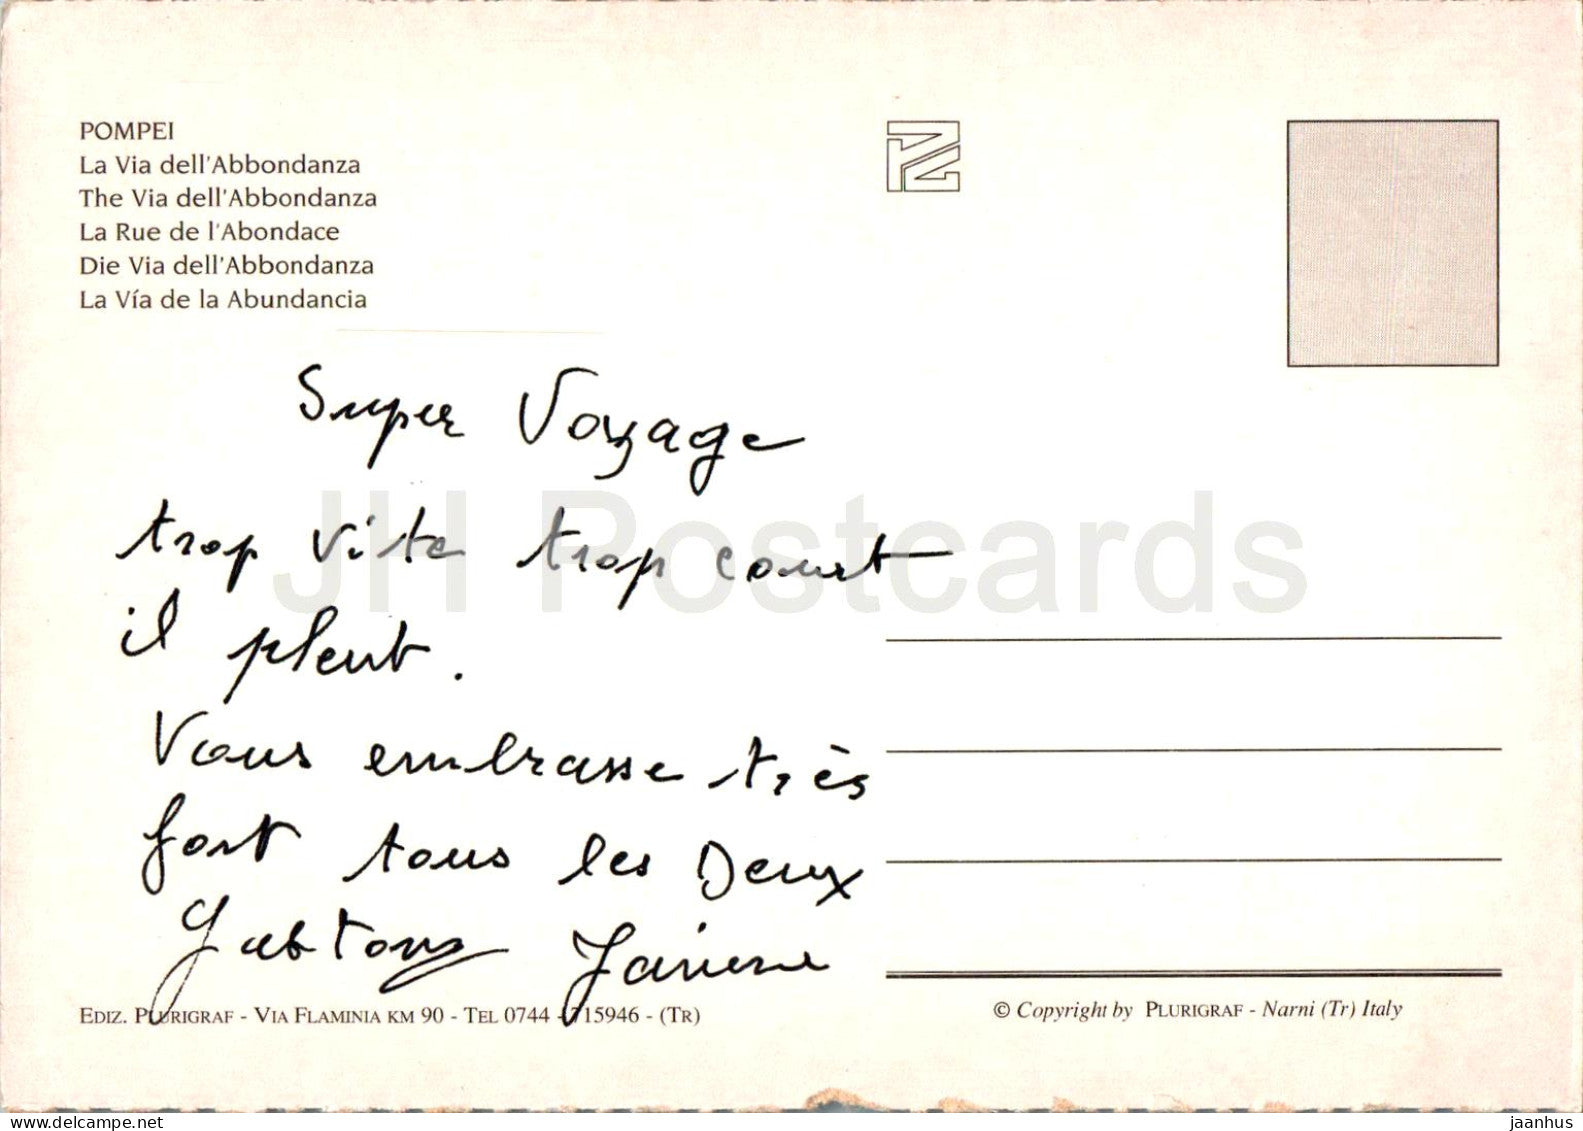 POMPEI
La Via dell'Abbondanza
The Via dell'Abbondanza
La Rue de l'Abondace
Die Via dell'Abbondanza
La Vía de la Abundancia
Super Voyage
trop vite trop court
il pleut.
Vous embrasse très
fort tous les Deux
Janine
JH Postcards
EDIZ. PLURIGRAF - VIA FLAMINIA KM 90 - TEL 0744 - 715946 - (TR)
© Copyright by PLURIGRAF - Narni (Tr) Italy
delcampe.net
jaanhus